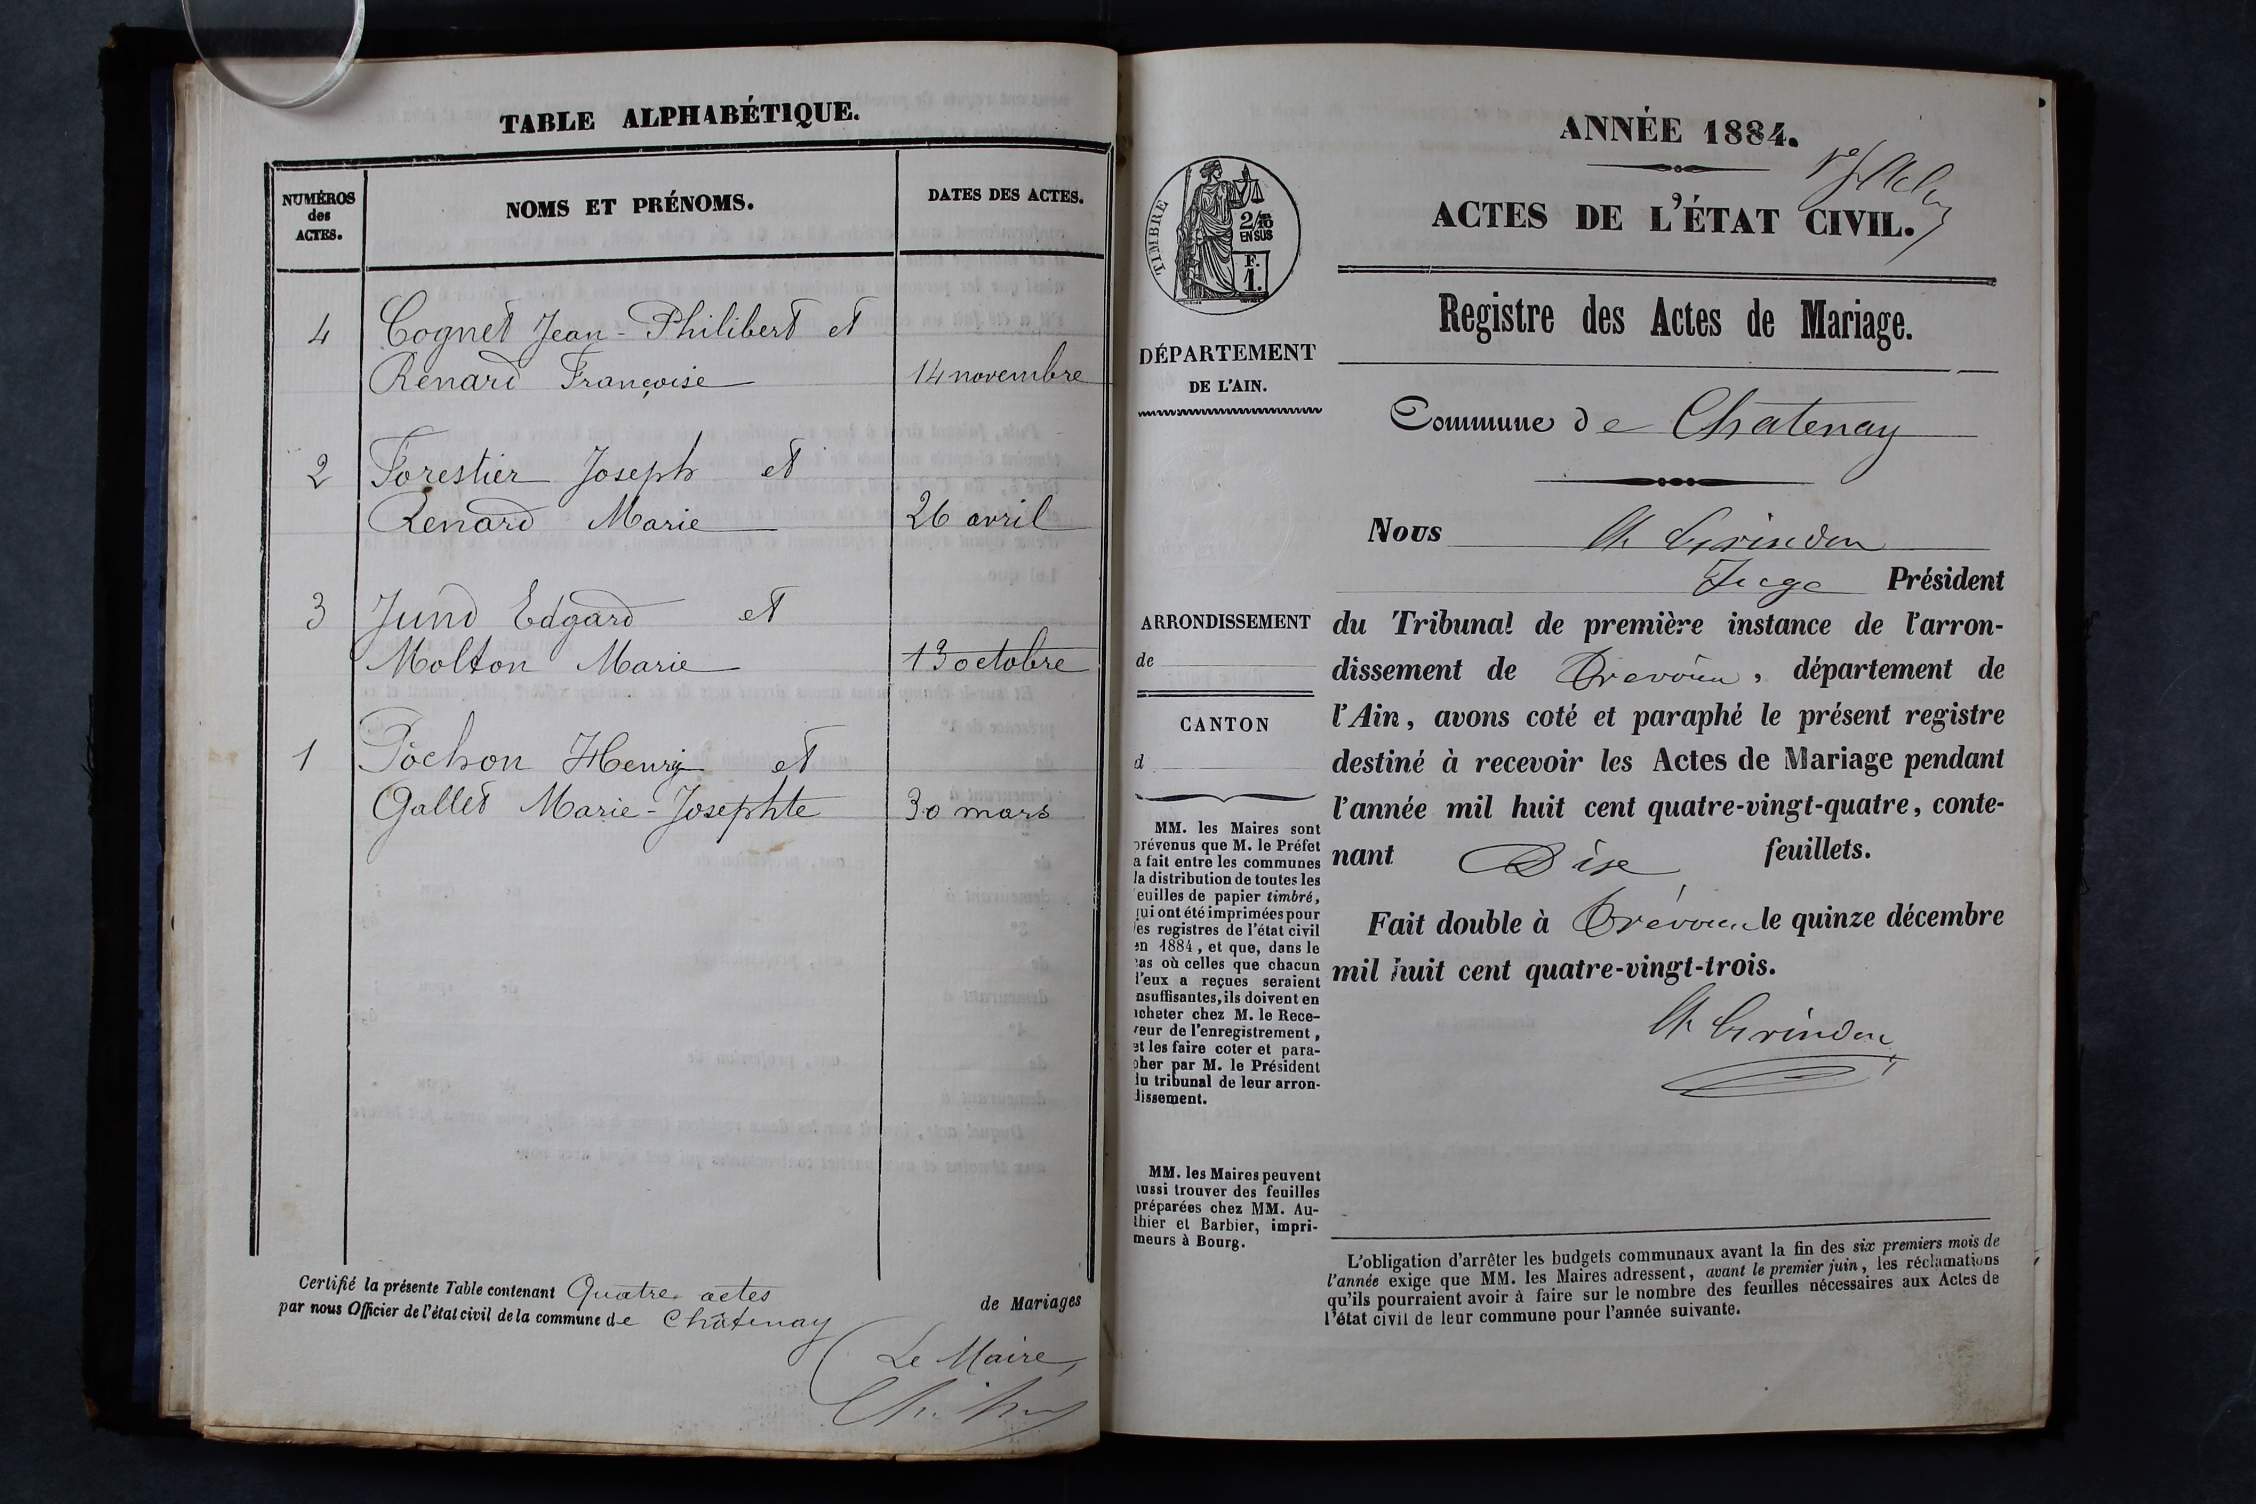 TABLE ALPHABÉTIQUE.
NUMÉROS
des
ACTES.
NOMS ET PRÉNOMS.
DATES DES ACTES.
4 Cognet Jean-Philibert et
Renard Françoise 14 novembre
2 Forestier Joseph et
Renard Marie 26 avril
3 Jund Edgard et
Molton Marie 13 octobre
1 Pochon Henry et
Gallet Marie-Josephte 30 mars
Certifié la présente Table contenant Quatre actes de Mariages
par nous Officier de l'état civil de la commune de Châtenay
Le Maire,
ANNÉE 1884.
ACTES DE L'ÉTAT CIVIL.
TIMBRE
2/10
EN SUS
F.
1.
Registre des Actes de Mariage.
DÉPARTEMENT
DE L'AIN.
Commune de Chatenay
Nous Ch Grindon
Juge Président
ARRONDISSEMENT
de
CANTON
d
du Tribunal de première instance de l'arron-
dissement de Trévoux, département de
l'Ain, avons coté et paraphé le présent registre
destiné à recevoir les Actes de Mariage pendant
l'année mil huit cent quatre-vingt-quatre, conte-
nant Dix feuillets.
Fait double à Trévoux le quinze décembre
mil huit cent quatre-vingt-trois.
Ch Grindon
MM. les Maires sont
prévenus que M. le Préfet
a fait entre les communes
la distribution de toutes les
feuilles de papier timbré,
qui ont été imprimées pour
les registres de l'état civil
en 1884, et que, dans le
cas où celles que chacun
d'eux a reçues seraient
insuffisantes, ils doivent en
acheter chez M. le Rece-
veur de l'enregistrement,
et les faire coter et para-
pher par M. le Président
du tribunal de leur arron-
dissement.
MM. les Maires peuvent
aussi trouver des feuilles
préparées chez MM. Au-
thier et Barbier, impri-
meurs à Bourg.
L'obligation d'arrêter les budgets communaux avant la fin des six premiers mois de
l'année exige que MM. les Maires adressent, avant le premier juin, les réclamations
qu'ils pourraient avoir à faire sur le nombre des feuilles nécessaires aux Actes de
l'état civil de leur commune pour l'année suivante.